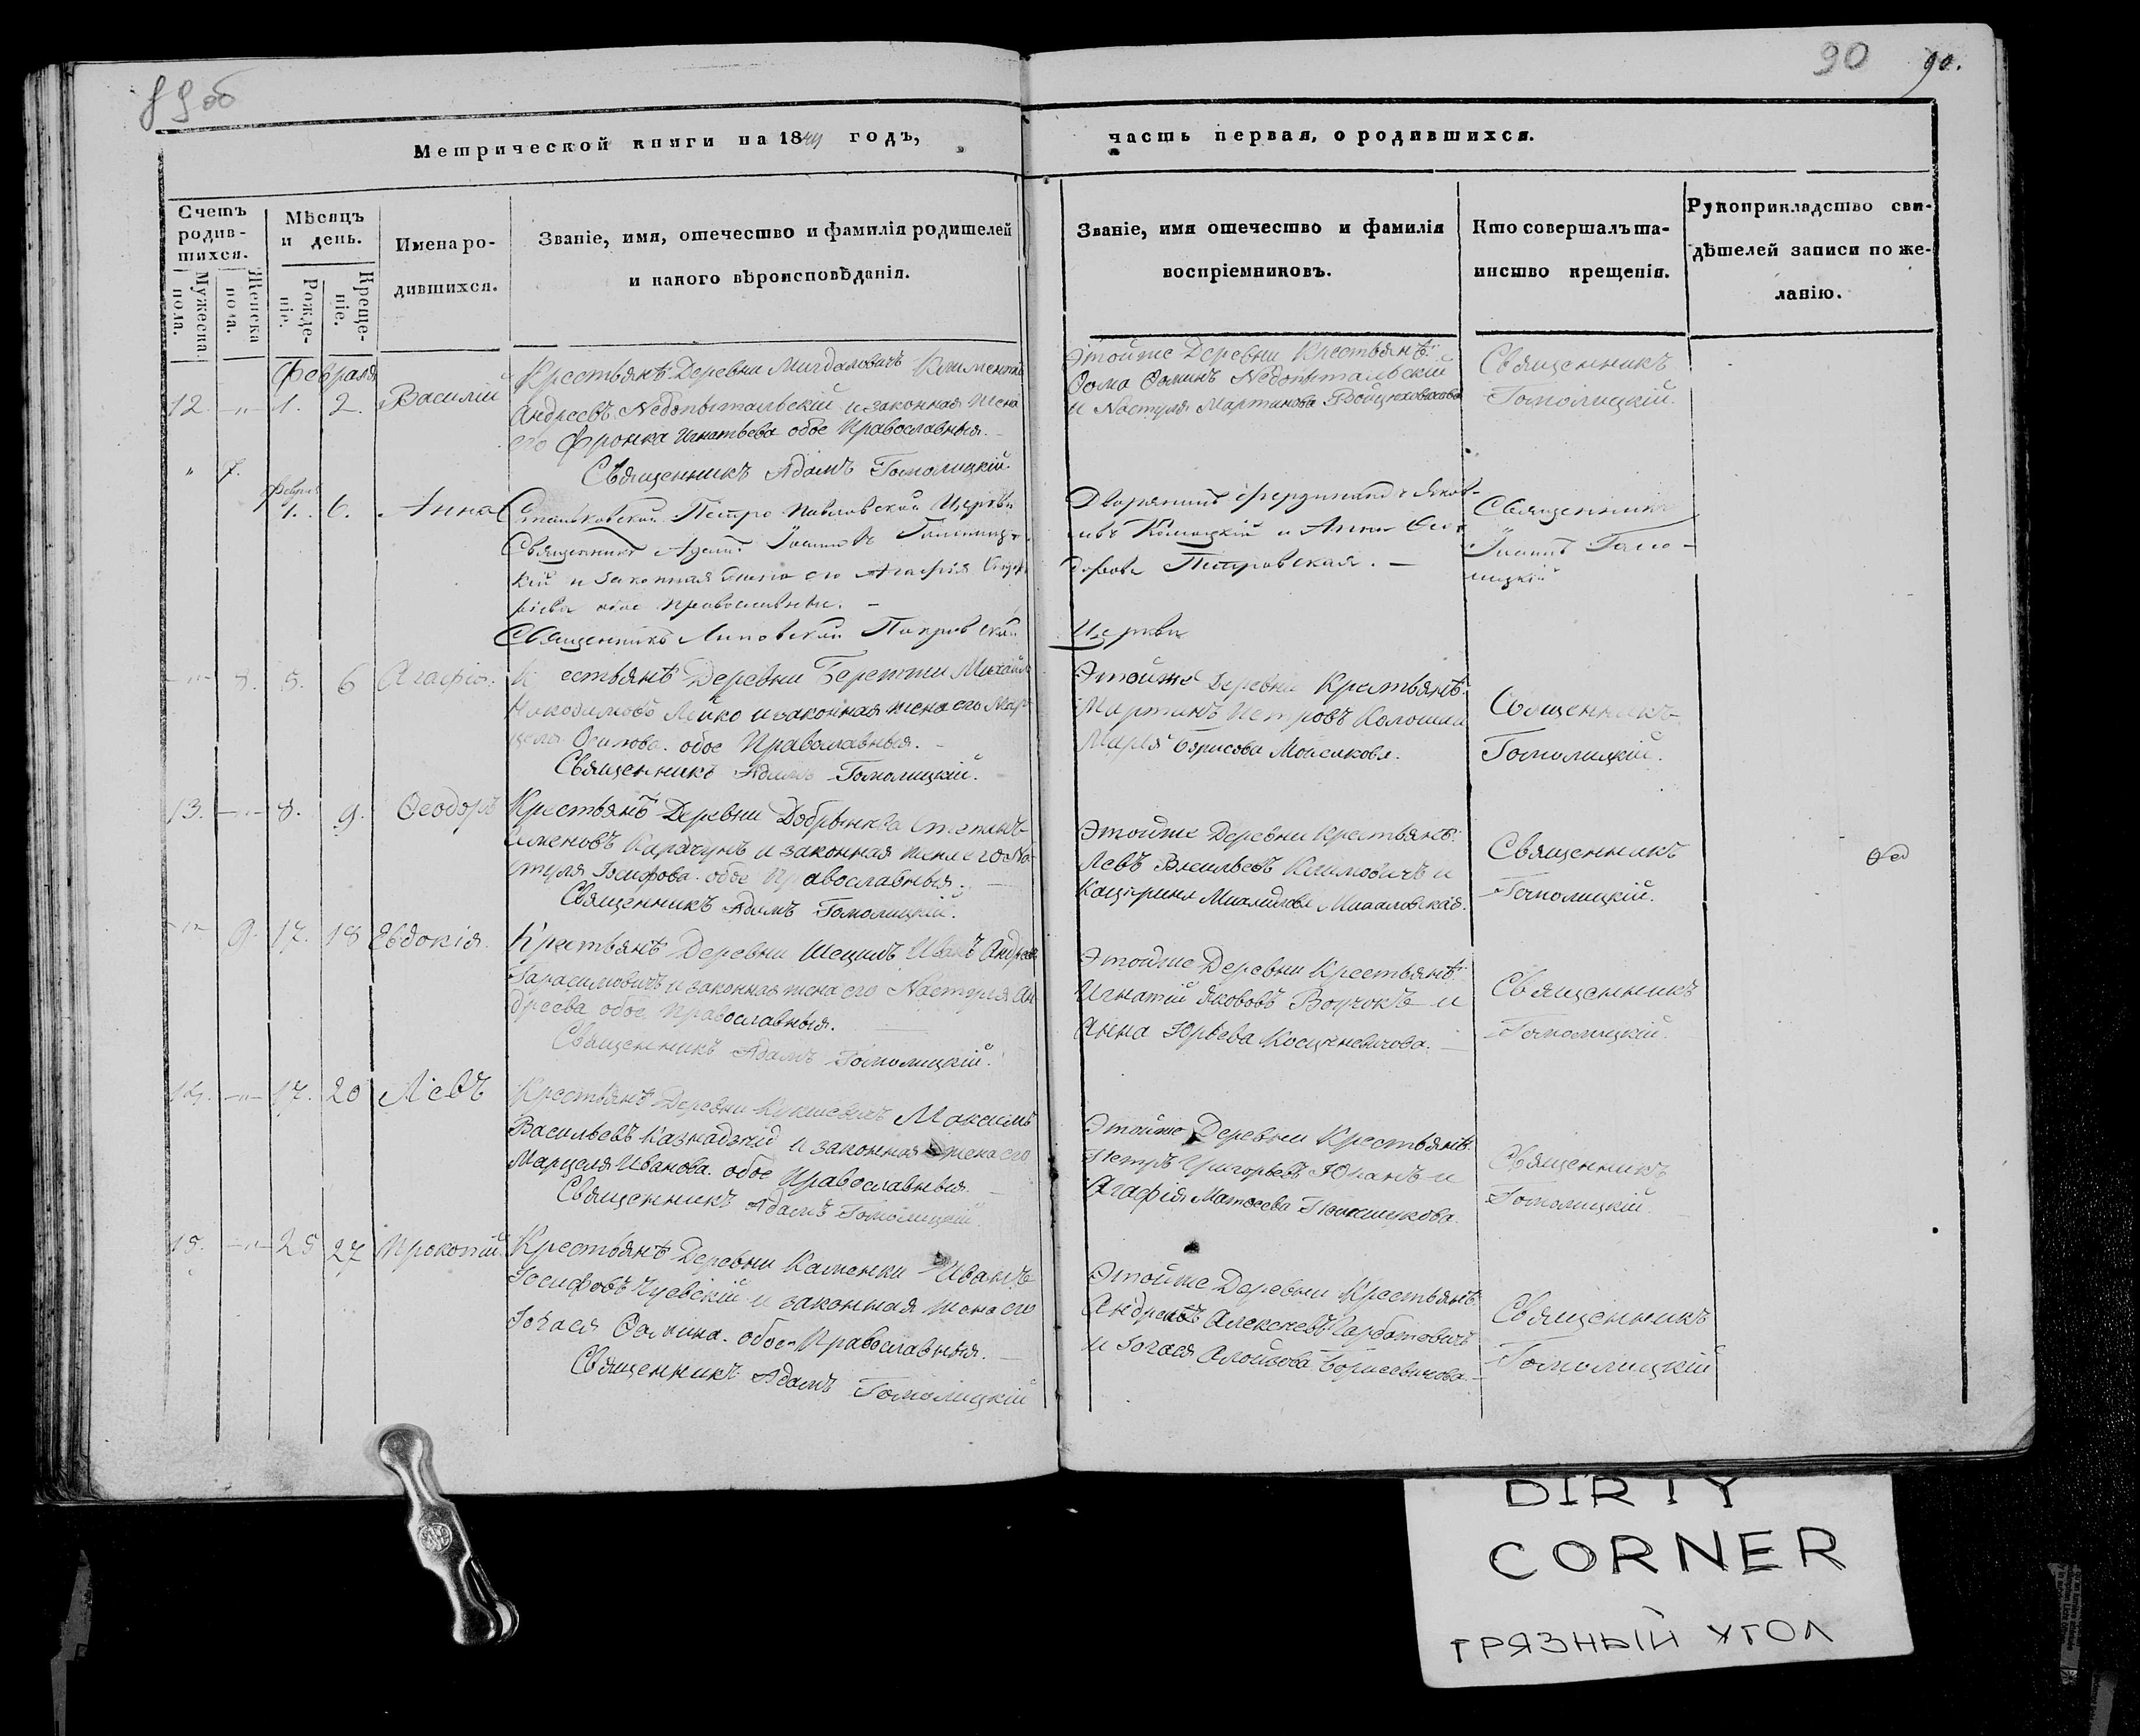 89 об
90 90.
Метрической книги на 1844 годъ,
часть первая, о родившихся.
Счетъ родив-шихся.
Мужеска пола.
Женска пола.
Мѣсяцъ и день.
Рожде-ніе.
Креще-ніе.
Имена ро-
дившихся.
Званіе, имя, отечество и фамилія родителей
и какого вѣроисповѣданія.
Званіе, имя отечество и фамилія
воспріемниковъ.
Кто совершалъ та-
инство крещенія.
Рукоприкладство сви-
дѣтелей записи по же-
ланію.
Февраля
12. -"- 1. 2. Василій
Крестьянѣ Деревни Климентій
Андреевъ Недопытальскій и законная жена
его Фронка Игнатьева обое Православныя.
Священникъ Адамъ Гомолицкій.
Этойже Деревни Крестьянѣ:
Ѳома Ѳоминъ Недопытальскій
и Настуля Мартинова
Священникъ
Гомолицкій.
" 7. 1. 6. Анна
Станьковской Петро Павловской Церкви
Священникъ Адамъ Іоанновъ Гомолиц-
кій и законная жена его Агафія
обое православныи.
Священникъ Липовской Покровской
Церкви
Дворянинъ Фердинандъ Яков-
левъ и Анна Ѳео-
дорова Петровская.
Священникъ
Іоаннъ Гомо-
лицкій
-"- 8. 5. 6 Агафія.
Крестьянѣ Деревни Бережи Михайло
Никодимовъ Лейко и законная жена его Мар-
целя Осипова. обое Православныя.
Священникъ Адамъ Гомолицкій.
Этойже Деревни Крестьянѣ:
Мартинъ Петровъ
Марья Борисова Моисикова.
Священникъ
Гомолицкій.
13. -"- 8. 9. Ѳеодоръ
Крестьянѣ Деревни Добрынева
Семеновъ Карачунъ и законная жена его На-
стуля Іосифова. обое Православныя.
Священникъ Адамъ Гомолицкій.
Этойже Деревни Крестьянѣ:
Левъ Васильевъ Климовичъ и
Катерина
Священникъ
Гомолицкій.
-"- 9. 17. 18 Евдокія.
Крестьянѣ Деревни Иванъ Андреевъ
Гарасимовичъ и законная жена его Настуля Ан
дреева обое Православныя.
Священникъ Адамъ Гомолицкій.
Этойже Деревни Крестьянѣ:
Игнатій Якововъ Волчокъ и
Анна Юрьева
Священникъ
Гомолицкій.
14. -"- 17. 20 Левъ
Крестьянѣ Деревни Максимъ
Васильевъ Казнадзѣй и законная жена его
Марцеля Иванова. обое Православныя.
Священникъ Адамъ Гомолицкій.
Этойже Деревни Крестьянѣ:
Петръ Григорьевъ Юханъ и
Агафія Матвеева
Священникъ
Гомолицкій.
15. -"- 25 27 Прокопій.
Крестьянѣ Деревни Каменки Иванъ
Іосифовъ Чуевскій и законная жена его
Ѳомина. обое Православныя.
Священникъ Адамъ Гомолицкій
Этойже Деревни Крестьянѣ
Андрей Алексеевъ Горбатовичъ
и Борисевичова.
Священникъ
Гомолицкій
DIRTY
CORNER
ГРЯЗНЫЙ УГОЛ